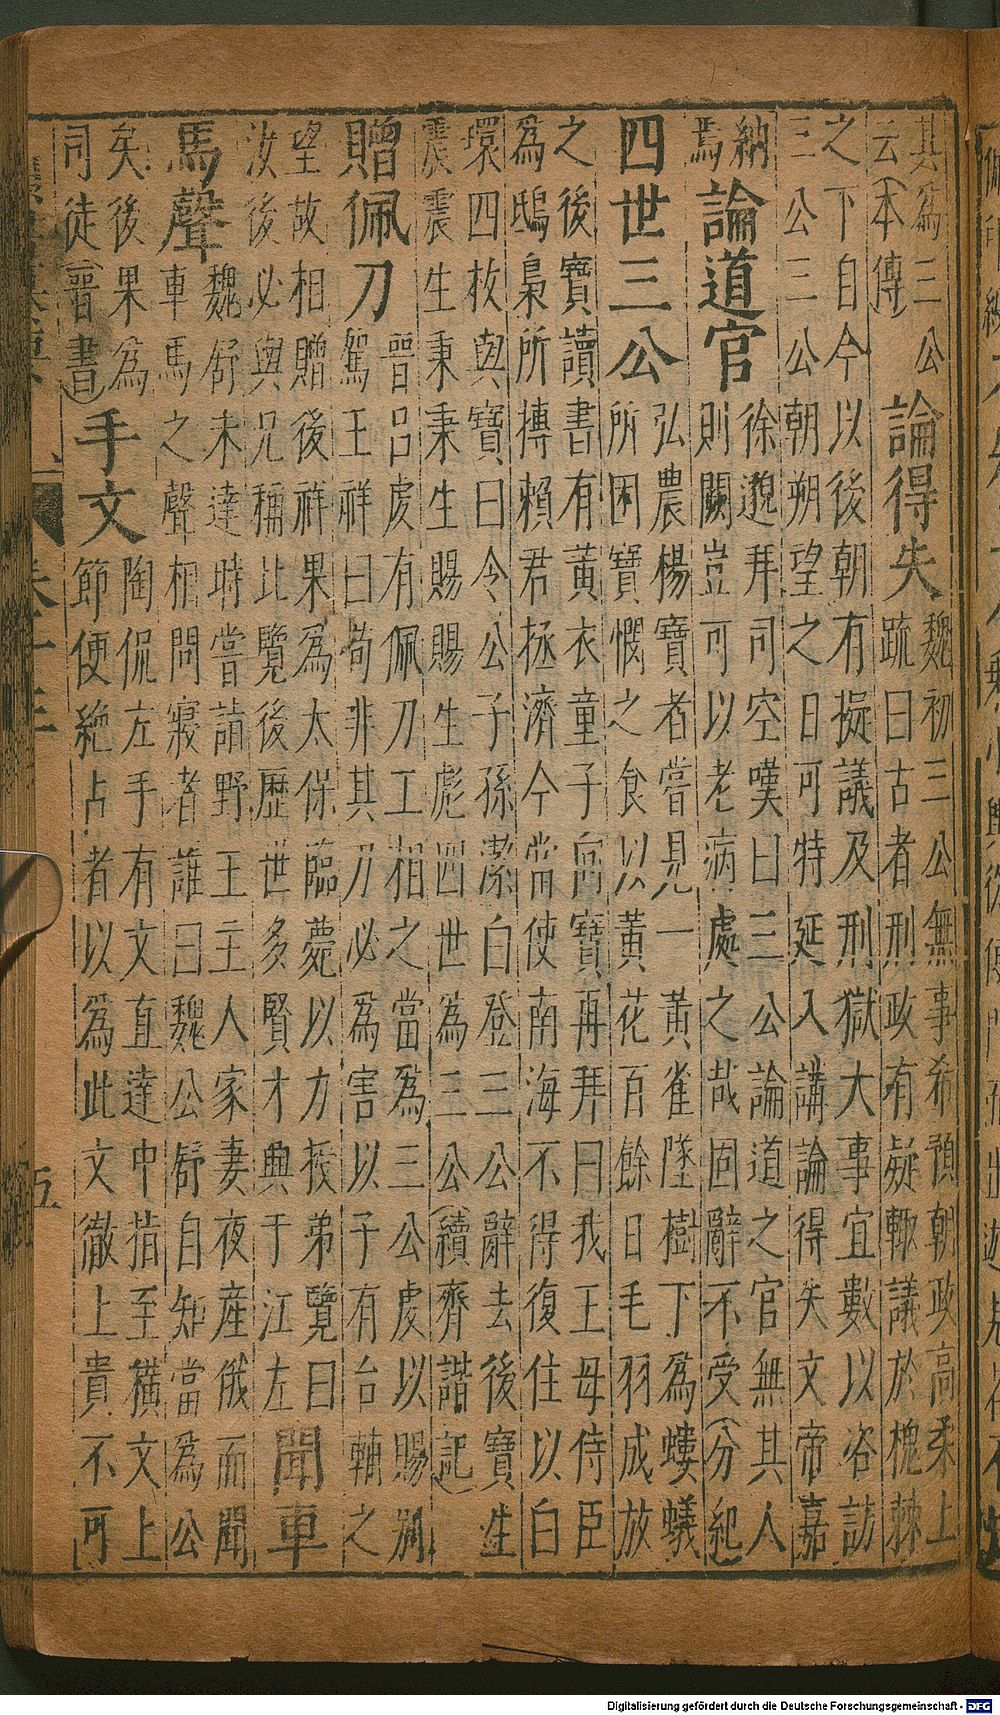 其為三公
云(本傳)
論得失
魏初三公無事希預朝政高柔上
疏曰古者刑政有疑輒議於槐棘
之下自今以後朝有擬議及刑獄大事宜數以咨訪
三公三公朝朔望之日可特延入講論得失文帝嘉
納
焉
論道官
徐邈拜司空嘆曰三公論道之官無其人
則闕豈可以老病處之哉固辭不受(分紀)
四世三公
弘農楊寶者嘗見一黃雀墜樹下為螻蟻
所困寶憫之食以黃花百餘日毛羽成放
之後寶讀書有黃衣童子向寶再拜曰我王母侍臣
為鴟梟所摶賴君拯濟今當使南海不得復住以白
環四枚與寶曰令公子孫潔白登三公辭去後寶生
震震生秉秉生賜賜生彪四世為三公(續齊諧記)
贈佩刀
晉呂虔有佩刀工相之當為三公虔以賜別
駕王祥曰苟非其刀必為害以子有台輔之
望故相贈後祥果為太保臨薨以刀授弟覽曰
汝後必與兄稱此覽後歷世多賢才興于江左
聞車
馬聲
魏舒未達時嘗詣野王主人家妻夜產俄而聞
車馬之聲相問寢者誰曰魏公舒自知當為公
矣後果為
司徒(晉書)
手文
陶侃左手有文直達中指至橫文上
節便絕占者以為此文徹上貴不可
卷十三
五
Digitalisierung gefördert durch die Deutsche Forschungsgemeinschaft - DFG